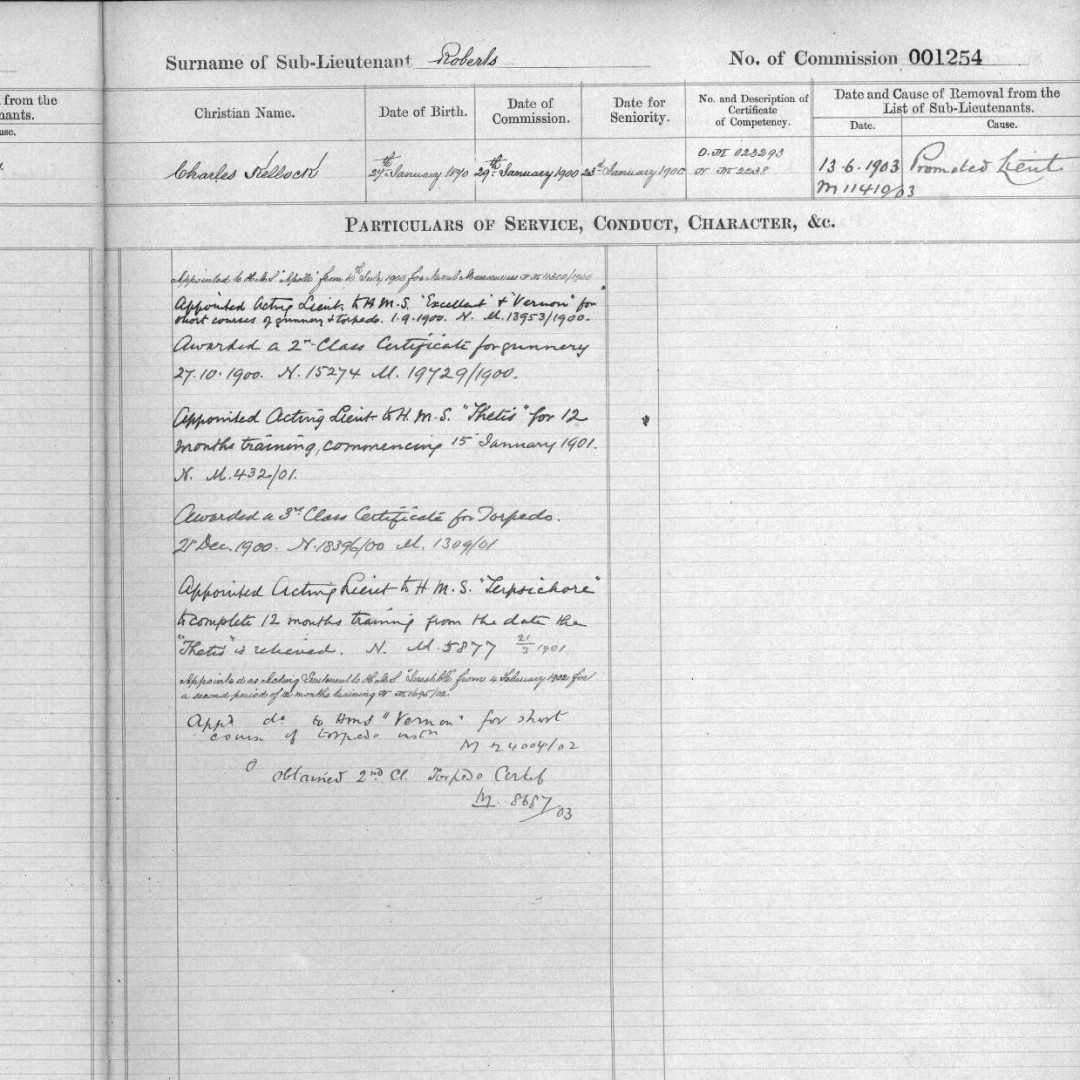 from the
nants.
use.
Surname of Sub-Lieutenant Roberts
No. of Commission 001254
Christian Name.
Date of Birth.
Date of Commission.
Date for Seniority.
No. and Description of Certificate of Competency.
Date and Cause of Removal from the List of Sub-Lieutenants.
Date.
Cause.
Charles Kellock
January 1870
29th January 1900
January 1900
023293
13.6.1903
M 11419/03
Promoted Lieut
PARTICULARS OF SERVICE, CONDUCT, CHARACTER, &c.
Appointed to H.M.S. "Apollo" from 10th July 1900 for Naval Manoeuvres
Appointed Acting Lieut. to H.M.S. "Excellent" & "Vernon" for
short courses of gunnery & torpedo. 1.9.1900. N. M. 13953/1900.
Awarded a 2nd Class Certificate for gunnery
27.10.1900. N. 15274 M. 19729/1900.
Appointed Acting Lieut to H.M.S. "Thetis" for 12
months training, commencing 15 January 1901.
N. M. 432/01.
Awarded a 3rd Class Certificate for Torpedo.
21 Dec. 1900. N. 18396/00 M. 1309/01
Appointed Acting Lieut to H.M.S. "Terpsichore"
to complete 12 months training from the date the
"Thetis" is relieved. N. M. 5877 21/3 1901
Appointed as Acting Lieutenant to H.M.S. "Terrible" from 4 February 1902 for
a second period of 12 months training
App'd do to HMS "Vernon" for short
course of torpedo instn
M 24004/02
obtained 2nd Cl. Torpedo Certif
M. 8687/03